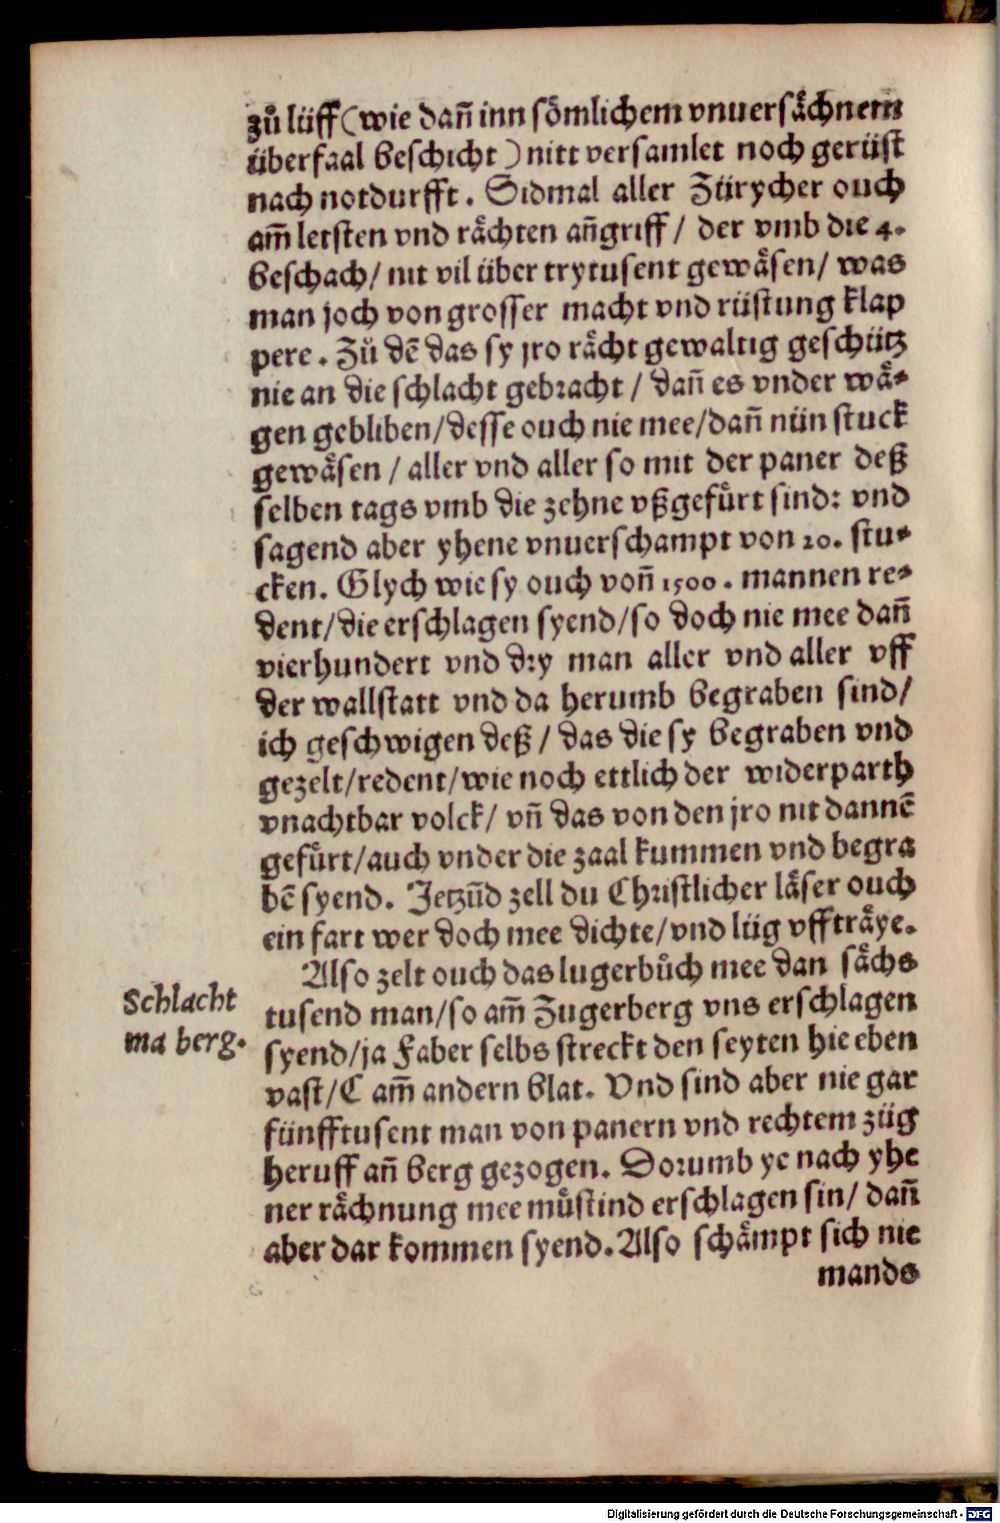 zuͦ lüff (wie dañ inn soͤmlichem vnuersaͤchnem
überfaal beschicht) nitt versamlet noch gerüst
nach notdurfft. Sidmal aller Zürycher ouch
am̃ letsten vnd raͤchten añgriff / der vmb die 4.
beschach / nit vil über trytusent gewaͤsen / was
man joch von grosser macht vnd rüstung klap
pere. Zuͦ dẽ das sy jro raͤcht gewaltig geschütz
nie an die schlacht gebracht / dañ es vnder waͤ-
gen gebliben / desse ouch nie mee / dañ nün stuck
gewaͤsen / aller vnd aller so mit der paner deß
selben tags vmb die zehne vßgefuͤrt sind: vnd
sagend aber yhene vnuerschampt von 20. stu-
cken. Glych wie sy ouch voñ 1500. mannen re-
dent / die erschlagen syend / so doch nie mee dañ
vierhundert vnd dry man aller vnd aller vff
der wallstatt vnd da herumb begraben sind /
ich geschwigen deß / das die sy begraben vnd
gezelt / redent / wie noch ettlich der widerparth
vnachtbar volck / vñ das von den jro nit dannẽ
gefuͤrt / auch vnder die zaal kummen vnd begra
bẽ syend. Jetzũd zell du Christlicher laͤser ouch
ein fart wer doch mee dichte / vnd lüg vfftraͤye.
Also zelt ouch das lugerbuͦch mee dan saͤchs
tusend man / so am̃ Zugerberg vns erschlagen
syend / ja Faber selbs streckt den seyten hie eben
vast / C am̃ andern blat. Vnd sind aber nie gar
fünfftusent man von panern vnd rechtem züg
heruff añ berg gezogen. Dorumb ye nach yhe
ner raͤchnung mee muͤstind erschlagen sin / dañ
aber dar kommen syend. Also schaͤmpt sich nie
mands
Schlacht
ma berg.
Digitalisierung gefördert durch die Deutsche Forschungsgemeinschaft - DFG